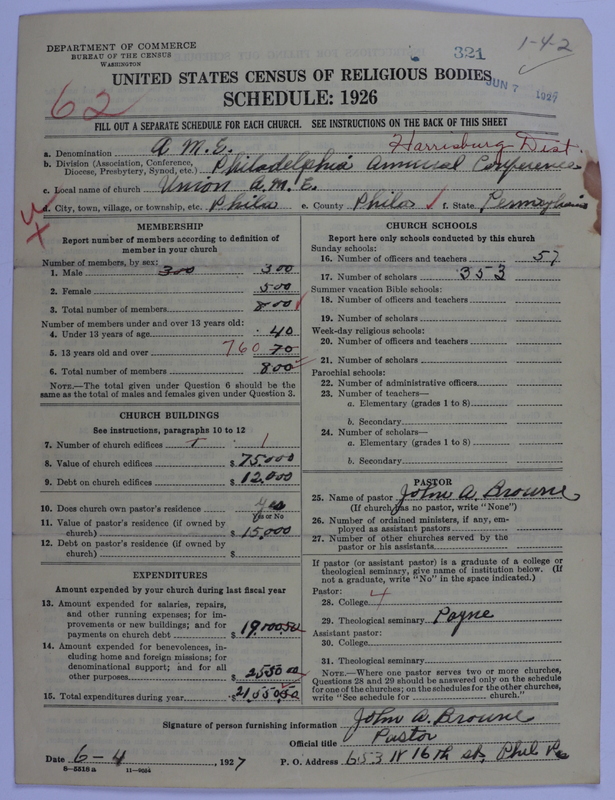 DEPARTMENT OF COMMERCE
BUREAU OF THE CENSUS
WASHINGTON
321
1-4-2
JUN 7 1927
UNITED STATES CENSUS OF RELIGIOUS BODIES
62
SCHEDULE: 1926
FILL OUT A SEPARATE SCHEDULE FOR EACH CHURCH. SEE INSTRUCTIONS ON THE BACK OF THIS SHEET
a. Denomination A. M. E. Harrisburg Dist.
b. Division (Association, Conference, Diocese, Presbytery, Synod, etc.) Philadelphia Annual Conference
c. Local name of church Union A.M.E.
d. City, town, village, or township, etc. Phila e. County Phila f. State Pennsylvania
MEMBERSHIP
Report number of members according to definition of
member in your church
Number of members, by sex:
1. Male 300 300
2. Female 500
3. Total number of members 800
Number of members under and over 13 years old:
4. Under 13 years of age 40
5. 13 years old and over 760 70
6. Total number of members 800
NOTE.—The total given under Question 6 should be
same as the total of males and females given under Question 3.
CHURCH BUILDINGS
See instructions, paragraphs 10 to 12
7. Number of church edifices 1
8. Value of church edifices $ 75.000
9. Debt on church edifices $ 12.000
10. Does church own pastor's residence yes
Yes or No
11. Value of pastor's residence (if owned by
church) $ 15,000
12. Debt on pastor's residence (if owned by
church) $
EXPENDITURES
Amount expended by your church during last fiscal year
13. Amount expended for salaries, repairs,
and other running expenses; for im-
provements or new buildings; and for
payments on church debt $
14. Amount expended for benevolences, in-
cluding home and foreign missions; for
denominational support; and for all
other purposes $
15. Total expenditures during year $
CHURCH SCHOOLS
Report here only schools conducted by this church
Sunday schools:
16. Number of officers and teachers 57
17. Number of scholars 353
Summer vacation Bible schools:
18. Number of officers and teachers
19. Number of scholars
Week-day religious schools:
20. Number of officers and teachers
21. Number of scholars
Parochial schools:
22. Number of administrative officers
23. Number of teachers—
a. Elementary (grades 1 to 8)
b. Secondary
24. Number of scholars—
a. Elementary (grades 1 to 8)
b. Secondary
PASTOR
25. Name of pastor John A. Browne
(If church has no pastor, write "None")
26. Number of ordained ministers, if any, em-
ployed as assistant pastors
27. Number of other churches served by the
pastor or his assistants
If pastor (or assistant pastor) is a graduate of a college or
theological seminary, give name of institution below. (If
not a graduate, write "No" in the space indicated.)
Pastor:
28. College 4
29. Theological seminary Payne
Assistant pastor:
30. College
31. Theological seminary
NOTE.—Where one pastor serves two or more churches,
Questions 28 and 29 should be answered only on the schedule
for one of the churches; on the schedules for the other churches,
write "See schedule for church."
Signature of person furnishing information John A. Browne
Official title Pastor
Date 6-4, 1927 P. O. Address 653 N 16th st, Phil Pa
8-5518 a 11-9024